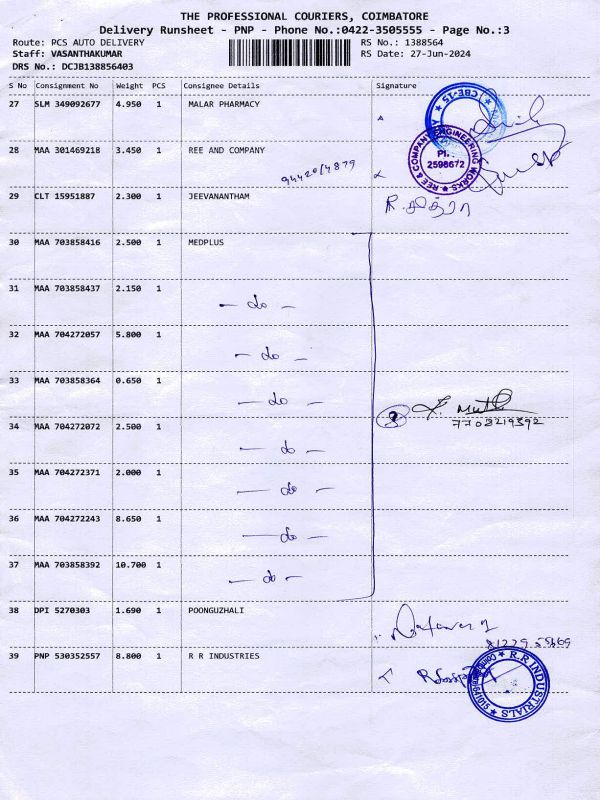 THE PROFESSIONAL COURIERS, COIMBATORE
Delivery Runsheet - PNP - Phone No.:0422-3505555 - Page No.:3
Route: PCS AUTO DELIVERY RS No.: 1388564
Staff: VASANTHAKUMAR RS Date: 27-Jun-2024
DRS No.: DCJB138856403
S No Consignment No Weight PCS Consignee Details Signature
27 SLM 349092677 4.950 1 MALAR PHARMACY
CBE-15
28 MAA 301469218 3.450 1 REE AND COMPANY
REE & COMPANY ENGINEERING WORKS
PI.:
2598672
29 CLT 15951887 2.300 1 JEEVANANTHAM
30 MAA 703858416 2.500 1 MEDPLUS
31 MAA 703858437 2.150 1 - do -
32 MAA 704272057 5.800 1 - do -
33 MAA 703858364 0.650 1 - do -
7703219392
34 MAA 704272072 2.500 1 - do -
35 MAA 704272371 2.000 1 - do -
36 MAA 704272243 8.650 1 - do -
37 MAA 703858392 10.700 1 - do -
38 DPI 5270303 1.690 1 POONGUZHALI
39 PNP 530352557 8.800 1 R R INDUSTRIES
R.R INDUSTRIALS